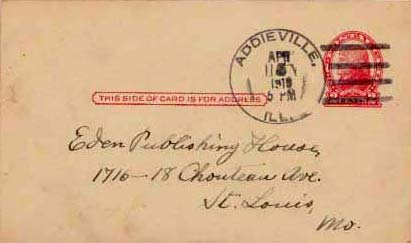 ADDIEVILLE,
APR
5 PM
ILL.
THIS SIDE OF CARD IS FOR ADDRESS
Eden Publishing House,
1716-18 Chouteau Ave.
St. Louis,
Mo.